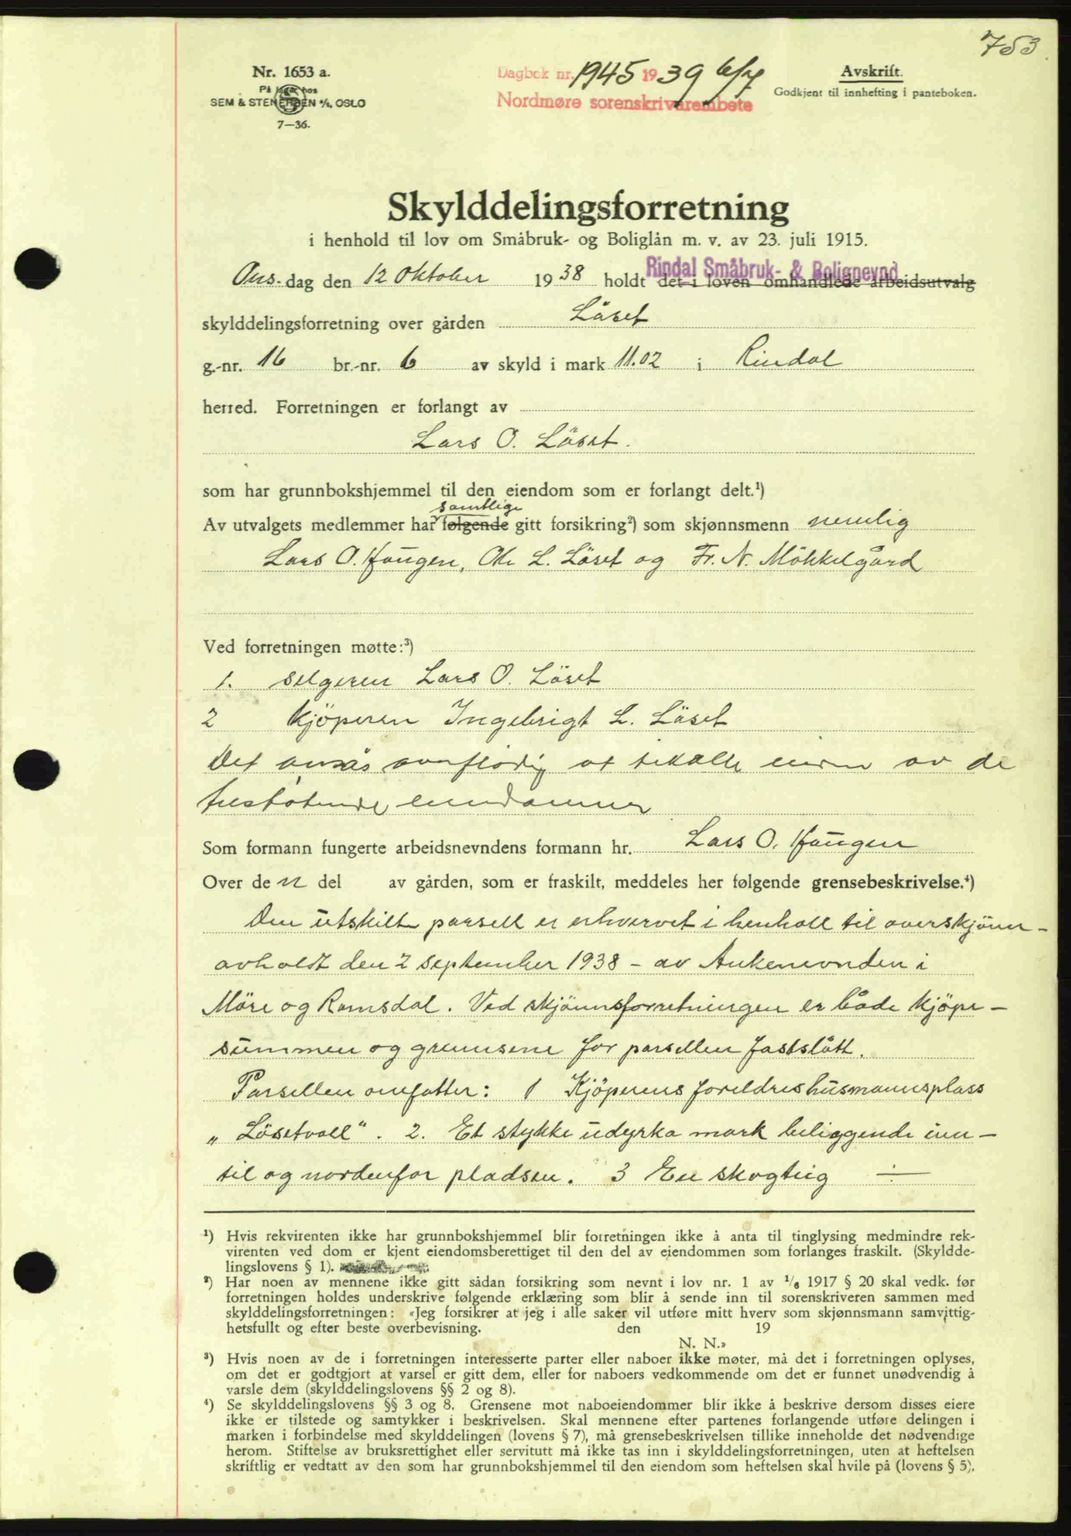 753
Nr. 1653 a.
På lager hos
SEM & STENERSEN A/S, OSLO
7—36.
Dagbok nr. 1945 1939 6/7
Nordmøre sorenskrivarembete
Avskrift.
Godkjent til innhefting i panteboken.
Skylddelingsforretning
i henhold til lov om Småbruk- og Boliglån m. v. av 23. juli 1915.
Ons. dag den 12 Oktober 1938 holdt det i loven omhandlede arbeidsutvalg
Rindal Småbruk- & Bolignevnd
skylddelingsforretning over gården Låset
g.-nr. 16 br.-nr. 6 av skyld i mark 11.02 i Rindal
herred. Forretningen er forlangt av
Lars O. Löset.
som har grunnbokshjemmel til den eiendom som er forlangt delt.¹)
samtlige
Av utvalgets medlemmer har følgende gitt forsikring²) som skjønnsmenn nemlig
Lars O. Haugen, Ole L. Löset og Fr. N. Mökkelgård
Ved forretningen møtte:³)
1. selgeren Lars O. Löset
2 Kjöperen Ingebrigt L. Löset
Det ansås overflödig at tilkalle eieren av de
tilstøtende eiendommer
Som formann fungerte arbeidsnevndens formann hr. Lars O. Haugen
Over den del av gården, som er fraskilt, meddeles her følgende grensebeskrivelse.⁴)
Den utskilte parsell er erhvervet i henholl til overskjönn-
avholdt den 2 september 1938 - av Ankenevnden i
Möre og Romsdal. Ved skjönnsforretningen er både kjöpe-
summen og grensene for parsellen fastslått.
Parsellen omfatter: 1 Kjöperens foreldres husmannsplass
„Lösetvoll". 2. Et stykke udyrka mark beliggende inn-
til og nordenfor pladsen. 3 En skogteig ÷
¹) Hvis rekvirenten ikke har grunnbokshjemmel blir forretningen ikke å anta til tinglysing medmindre rek-
virenten ved dom er kjent eiendomsberettiget til den del av eiendommen som forlanges fraskilt. (Skyldde-
lingslovens § 1).
²) Har noen av mennene ikke gitt sådan forsikring som nevnt i lov nr. 1 av 1/6 1917 § 20 skal vedk. før
forretningen holdes underskrive følgende erklæring som blir å sende inn til sorenskriveren sammen med
skylddelingsforretningen: «Jeg forsikrer at jeg i alle saker vil utføre mitt hverv som skjønnsmann samvittig-
hetsfullt og efter beste overbevisning. den 19
N. N.»
³) Hvis noen av de i forretningen interesserte parter eller naboer ikke møter, må det i forretningen oplyses,
om det er godtgjort at varsel er gitt dem, eller for naboers vedkommende om det er funnet unødvendig å
varsle dem (skylddelingslovens §§ 2 og 8).
⁴) Se skylddelingslovens §§ 3 og 8. Grensene mot naboeiendommer blir ikke å beskrive dersom disses eiere
ikke er tilstede og samtykker i beskrivelsen. Skal mennene efter partenes forlangende utføre delingen i
marken i forbindelse med skylddelingen (lovens § 7), må grensebeskrivelsen tillike inneholde det nødvendige
herom. Stiftelse av bruksrettighet eller servitutt må ikke tas inn i skylddelingsforretningen, uten at heftelsen
skriftlig er vedtatt av den som har grunnbokshjemmel til den eiendom som heftelsen skal hvile på (lovens § 5).